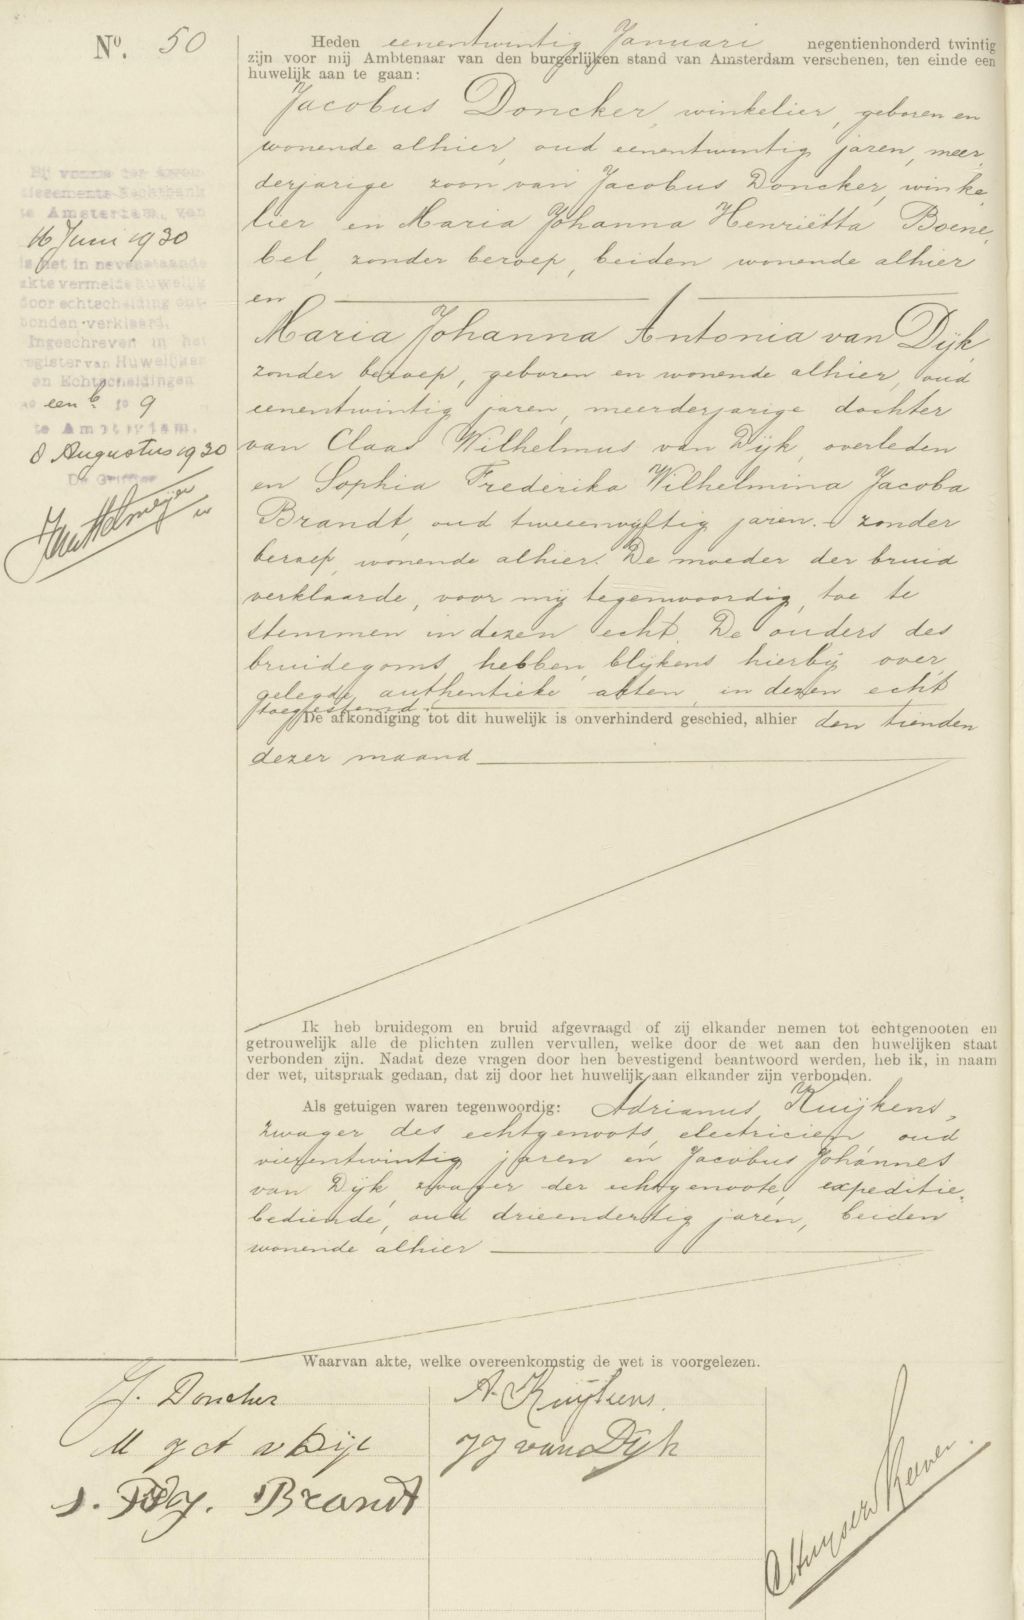 No. 50
Heden eenentwintig Januari negentienhonderd twintig
zijn voor mij Ambtenaar van den burgerlijken stand van Amsterdam verschenen, ten einde een
huwelijk aan te gaan:
Jacobus Doncker, winkelier, geboren en
wonende alhier, oud eenentwintig jaren, meer,
derjarige zoon van Jacobus Doncker, winke,
lier en Maria Johanna Henriëtta Boene,
bel, zonder beroep, beiden wonende alhier
en
Maria Johanna Antonia van Dijk,
zonder beroep, geboren en wonende alhier, oud
eenentwintig jaren, meerderjarige dochter
van Claas Wilhelmus van Dijk, overleden
en Sophia Frederika Wilhelmina Jacoba
Brandt, oud tweeenvijftig jaren, zonder
beroep, wonende alhier. De moeder der bruid
verklaarde, voor mij tegenwoordig, toe te
stemmen in dezen echt. De ouders des
bruidegoms hebben blijkens hierbij over,
gelegde authentieke akten in dezen echt
toegestemd.
De afkondiging tot dit huwelijk is onverhinderd geschied, alhier den tienden
dezer maand
Ik heb bruidegom en bruid afgevraagd of zij elkander nemen tot echtgenooten en
getrouwelijk alle de plichten zullen vervullen, welke door de wet aan den huwelijken staat
verbonden zijn. Nadat deze vragen door hen bevestigend beantwoord werden, heb ik, in naam
der wet, uitspraak gedaan, dat zij door het huwelijk aan elkander zijn verbonden.
Als getuigen waren tegenwoordig: Adrianus Kuijkens,
zwager des echtgenoots, electricien, oud
vierentwintig jaren en Jacobus Johannes
van Dijk, zwager der echtgenoote, expeditie,
bediende, oud drieendertig jaren, beiden
wonende alhier
Waarvan akte, welke overeenkomstig de wet is voorgelezen.
J. Doncker
M J A v Dijk
S. F W J. Brandt
A. Kuijkens.
J J van Dijk
Bij vonnis der Arron-
dissements-Rechtbank
te Amsterdam, van
16 Juni 1930
is het in nevenstaande
akte vermelde huwelijk
door echtscheiding ont-
bonden verklaard.
Ingeschreven in het
register van Huwelijken
en Echtscheidingen
no een b fo 9
te Amsterdam.
8 Augustus 1930
De Griffier